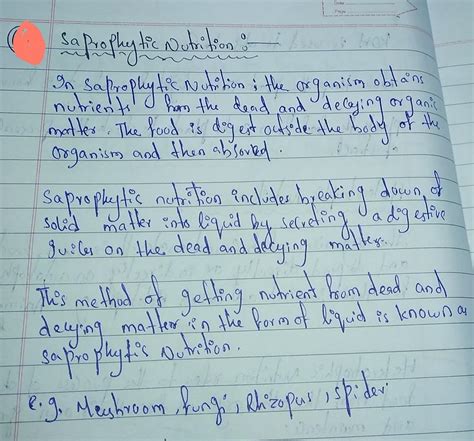 Saprophytic Nutrition :—
In saprophytic Nutrition ; the organism obtains
nutrients from the dead and decaying organic
matter. The food is digest outside the body of the
organism and then absorved.
saprophytic nutrition includes breaking down of
solid matter into liquid by secreting a digestive
guices on the dead and decying matter.
This method of getting nutrient from dead and
decying matter in the form of liquid is known as
saprophytic Nutrition.
e.g. Meshroom, fungi, Rhizopus, spider